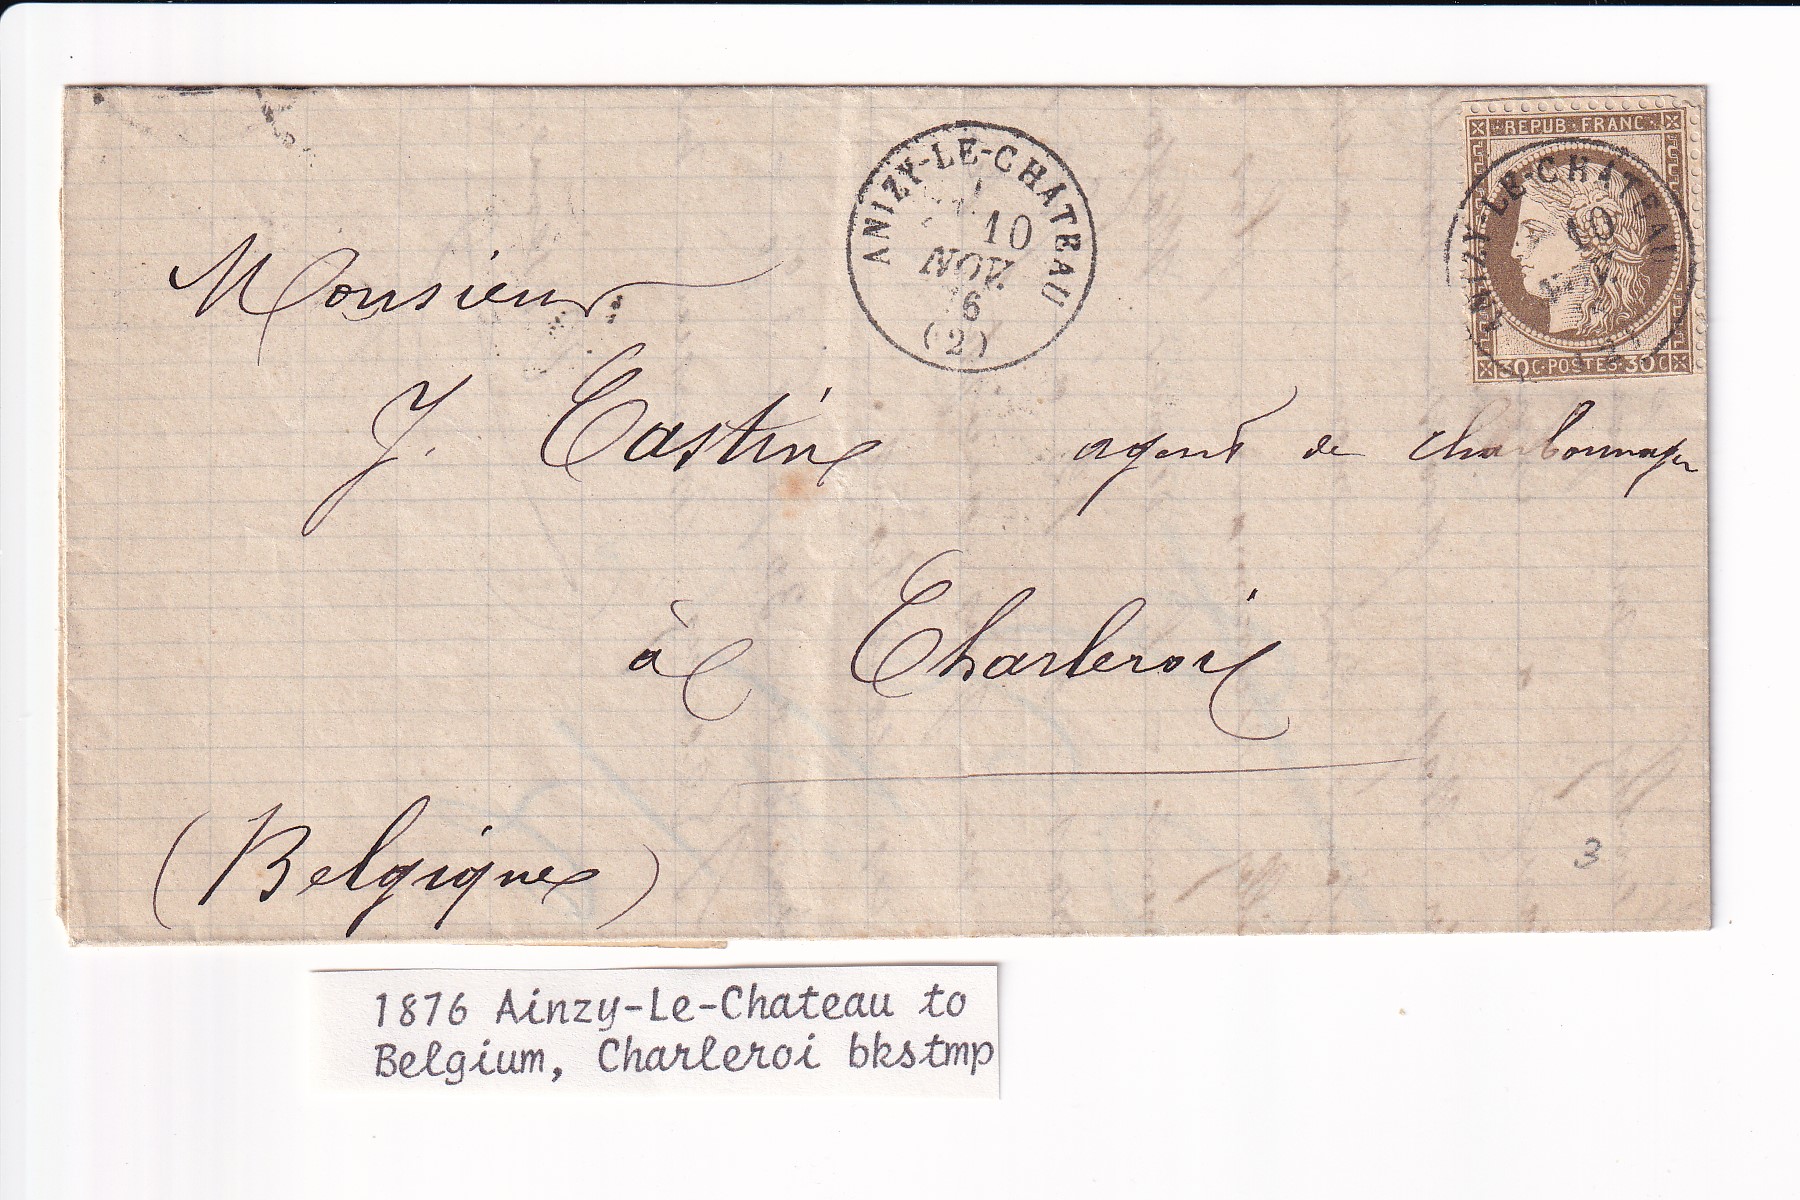 ANIZY-LE-CHATEAU
10
NOV.
76
(2)
REPUB. FRANC.
ANIZY-LE-CHATEAU
10
NOV.
30C·POSTES·30C
Monsieur
J. Castin agent de charbonnages
à Charleroi
(Belgique)
3
1876 Ainzy-Le-Chateau to
Belgium, Charleroi bkstmp